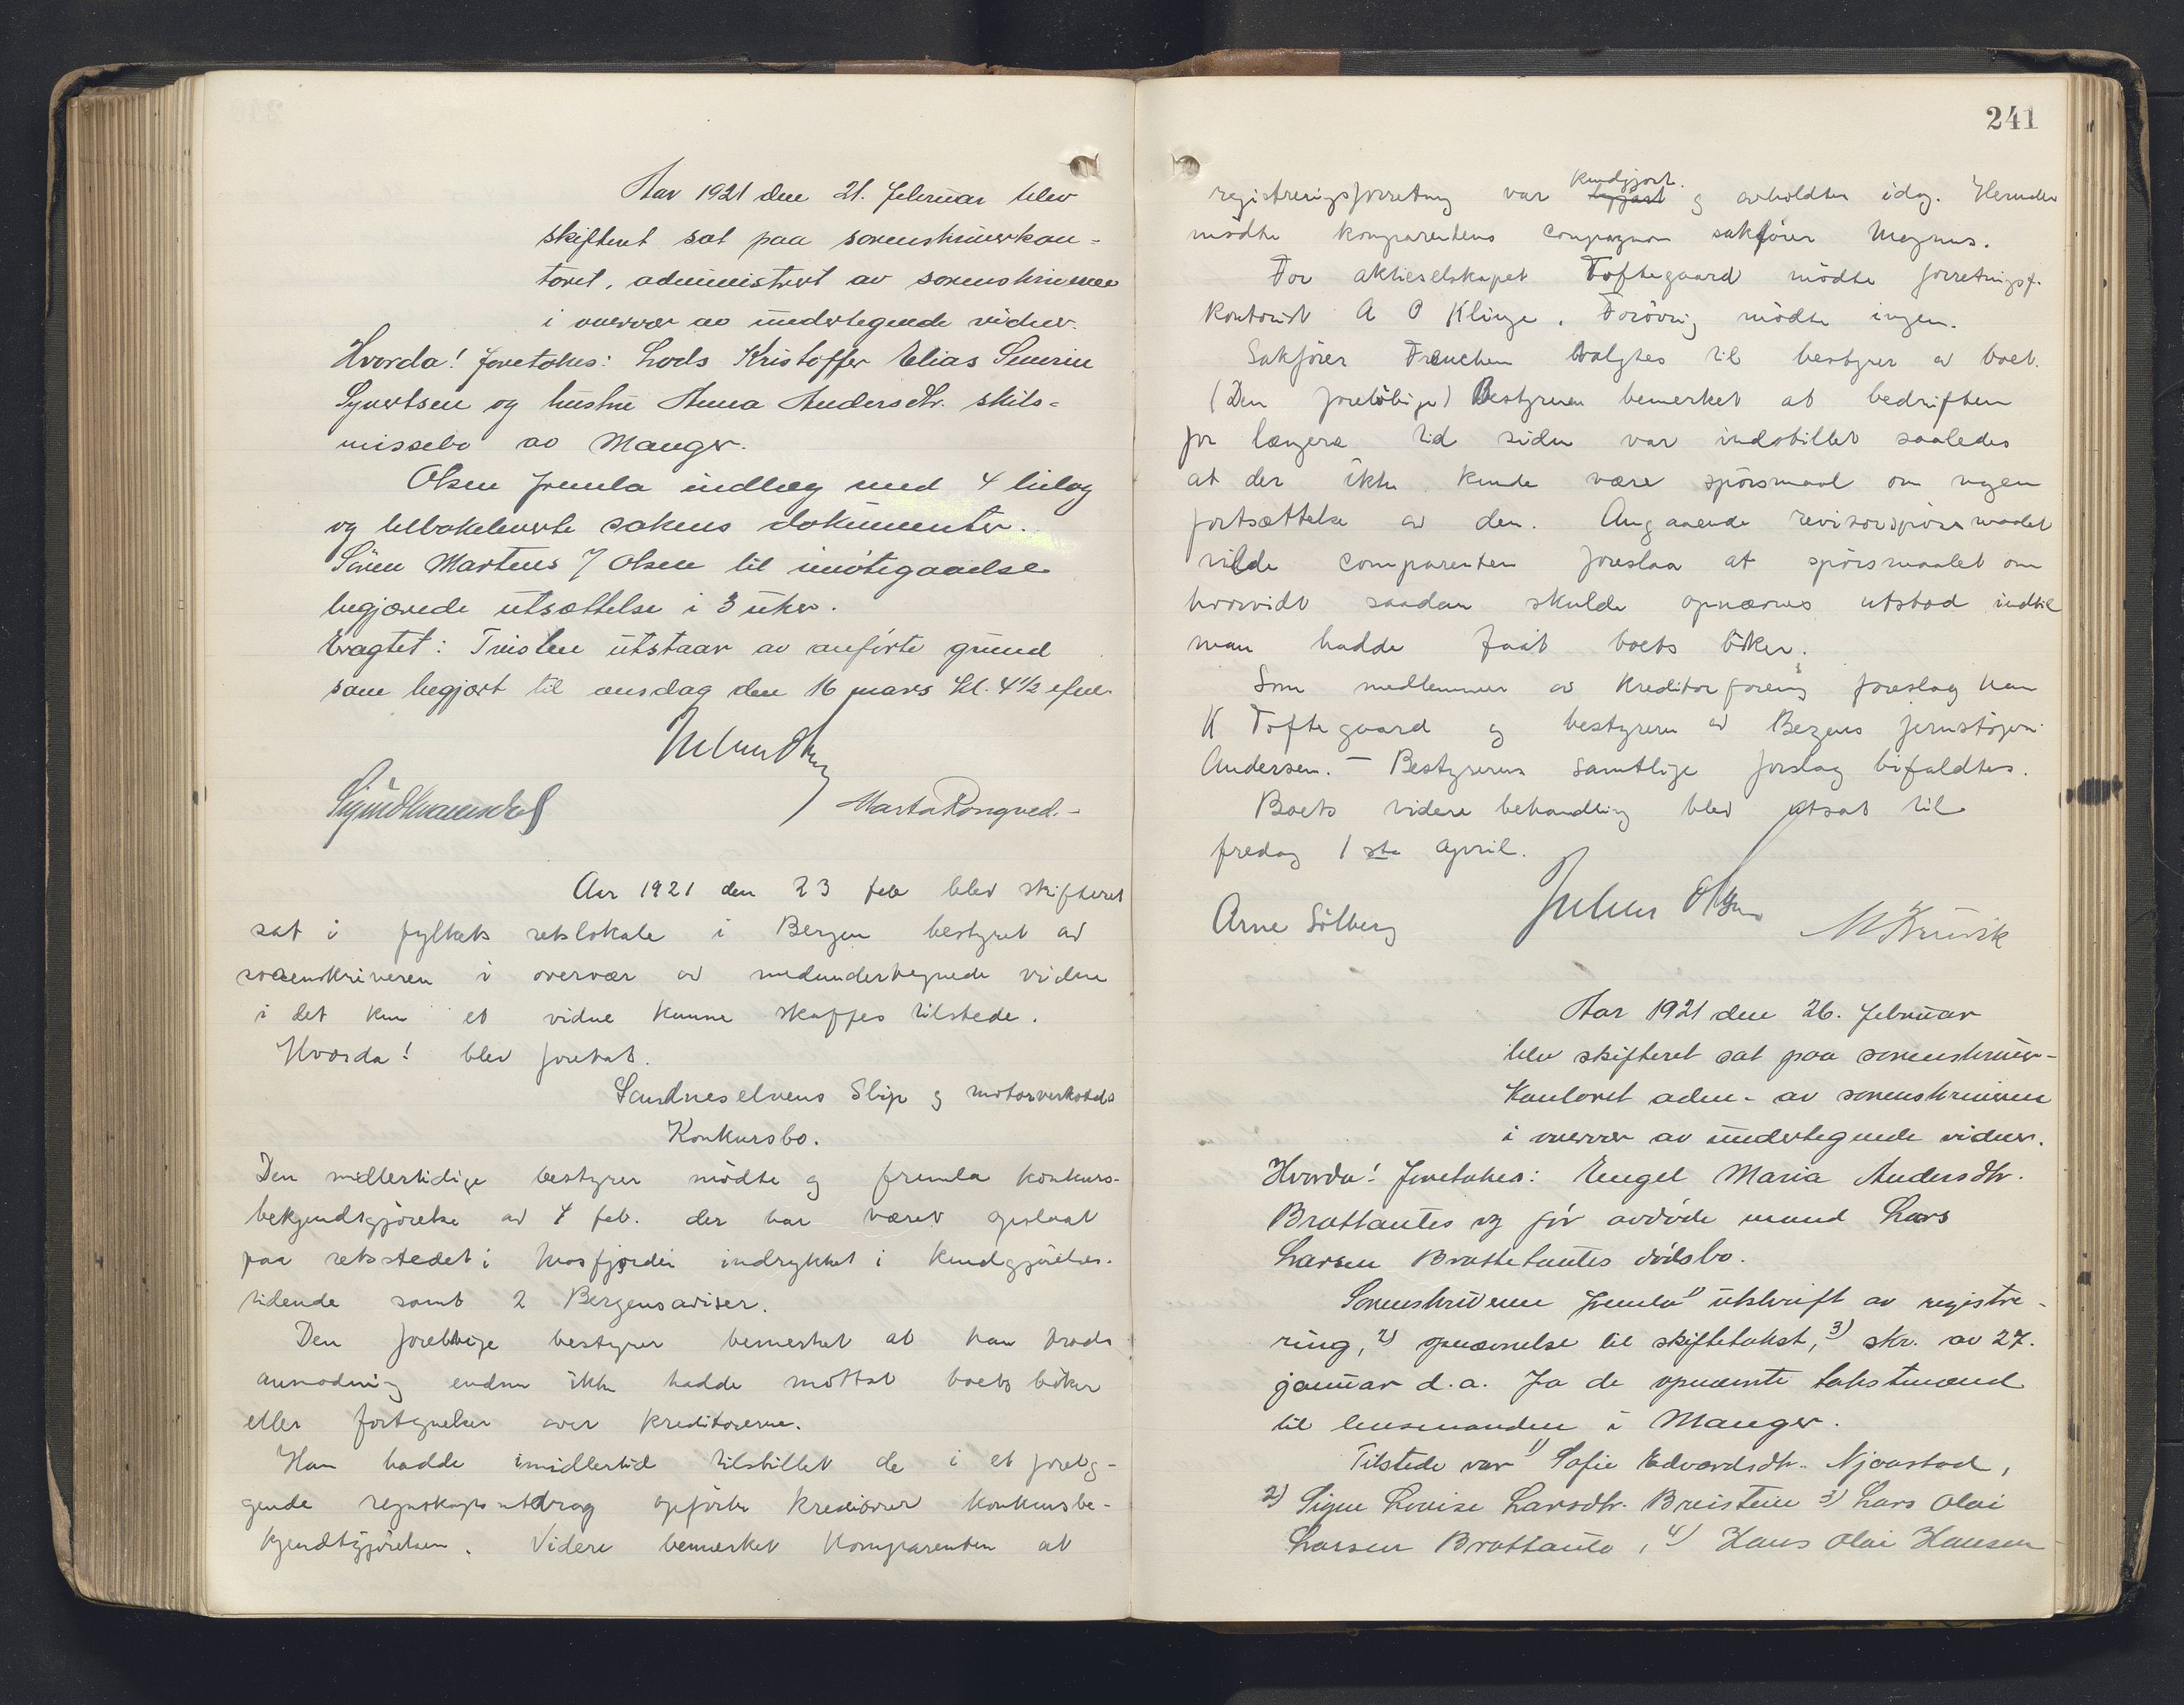 Aar 1921 den 21. februar blev
skifteret sat paa sorenskriverkon-
toret, administrert av sorenskriveren
i overvær av undertegnede vidner.
Hvorda! foretokes: Lods Kristoffer Elias Severin
Syvertsen og hustru Anna Andersdtr. skils-
missebo av Manger.
Olsen fremla indlæg med 4 bilag
og tilbakeleverte sakens dokumenter.
Sören Martens f Olsen til imøtegaaelse
begjærede utsættelse i 3 uker.
Eragtet: Tvisten utstaar av anførte grund
som begjært til onsdag den 16 mars kl. 4 1/2 efm.
Marta Rongved.-
Aar 1921 den 23 feb blev skifteret
sat i fylkets retslokale i Bergen bestyret av
sorenskriveren i overvær av medundertegnede vidne
i det kun et vidne kunne skaffes tilstede.
Hvorda! blev foretat.
Sandneselvens Slip og motorverksteds
Konkursbo.
Den midlertidige bestyrer mödte og fremla konkurs-
bekjendtgjörelse av 4 feb. der har været opslaat
paa retsstedet i  indrykket i Kundgjörelses-
tidende samt 2 Bergensaviser.
Den foreløbige bestyrer bemerket at han trods
anmodning endnu ikke hadde mottat boets böker
eller fortegnelse over kreditorerne.
Han hadde imidlertid tilstillet de i et forelig-
gende regnskapsutdrag opförte kreditorer konkursbe-
kjendtgjörelsen. Videre bemerket komparenten at
241
registreringsforretning var kundgjort. og avholdtes idag. Herunder
mödte komparentens Compagnon sakförer Magnus.
For aktieselskapet Toftegaard mödte forretningsf.
kontorist A O Klinge. Forövrig mödte ingen.
Sakförer Treuchen valgtes til bestyrer av boet.
(Den foreløbige) Bestyreren bemerket at bedriften
for længere tid siden var indstillet saaledes
at der ikke kunde være spörsmaal om nogen
fortsættelse av den. Angaaende revisorspörsmaalet
vilde comparenten foreslaa at spörsmaalet om
hvorvidt saadan skulde opnævnes utstod indtil
man hadde faat boets böker.
Som medlemmer av Kreditorforening foreslog han
K Toftegaard og bestyreren av Bergens jernstöperi
Andersen. - Bestyrerens samtlige forslag bifaldtes.
Boets videre behandling blev utsat til
fredag 1ste April.
Arne Sölberg
Julius Olsen
Aar 1921 den 26. februar
blev skifteret sat paa sorenskriver-
kontoret adm. av sorenskriveren
i overvær av undertegnede vidner.
Hvorda! foretokes: Engel Maria Andersdtr.
Brattautes og før avdøde mand Lars
Larsen Brattetautes dødsbo.
Sorenskriveren fremla 1) utskrift av registre-
ring, 2) opnævnelse til skiftetakst, 3) skr. av 27.
januar d.a. fra de opnævnte takstmænd
til lensmanden i Manger.
Tilstede var 1) Sofie Edvardsdtr. Njaastad,
2) Signe Lovise Larsdtr. Breistein 3) Lars Olai
Larsen Brattauto, 4) Hans Olai Hansen